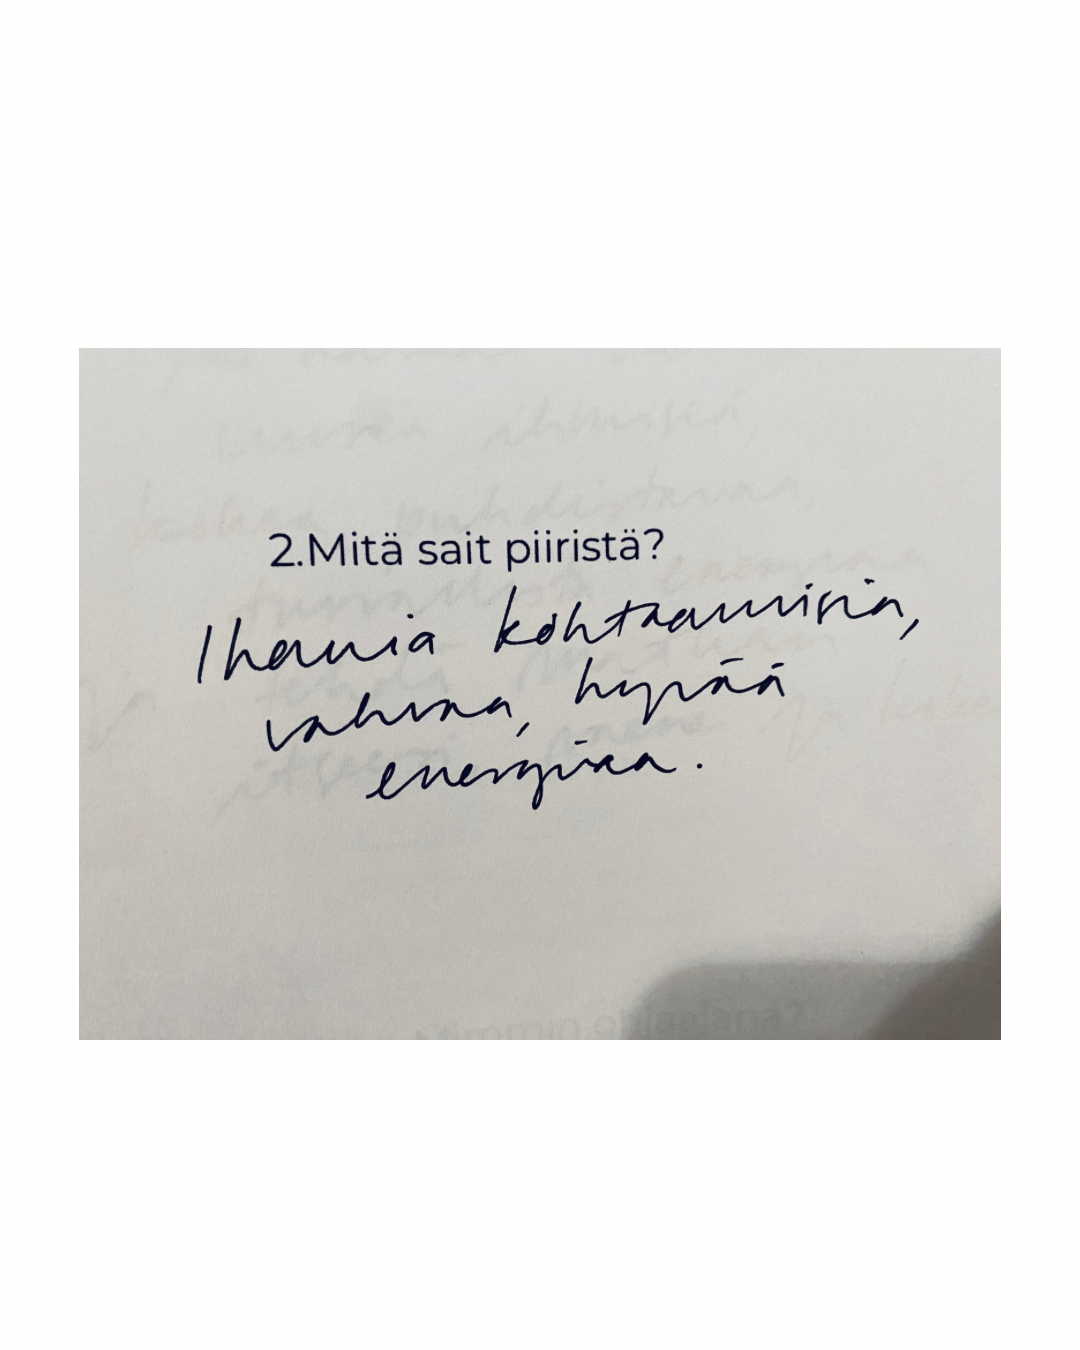 2.Mitä sait piiristä?
Ihania kohtaamisia,
vahvaa, hyvää
energiaa.